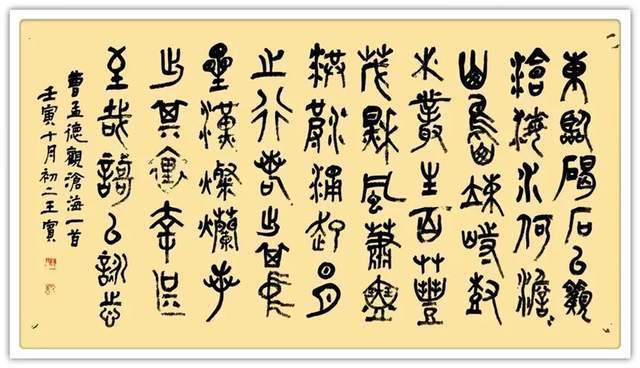 東臨碣石以觀
滄海水何澹〻
山島竦峙樹
木叢生百草豐
茂秋風蕭瑟
洪波涌起日月
之行若出其中
星漢燦爛若
出其裏幸甚
至哉歌以詠志
曹孟德觀滄海一首
壬寅十月初二王